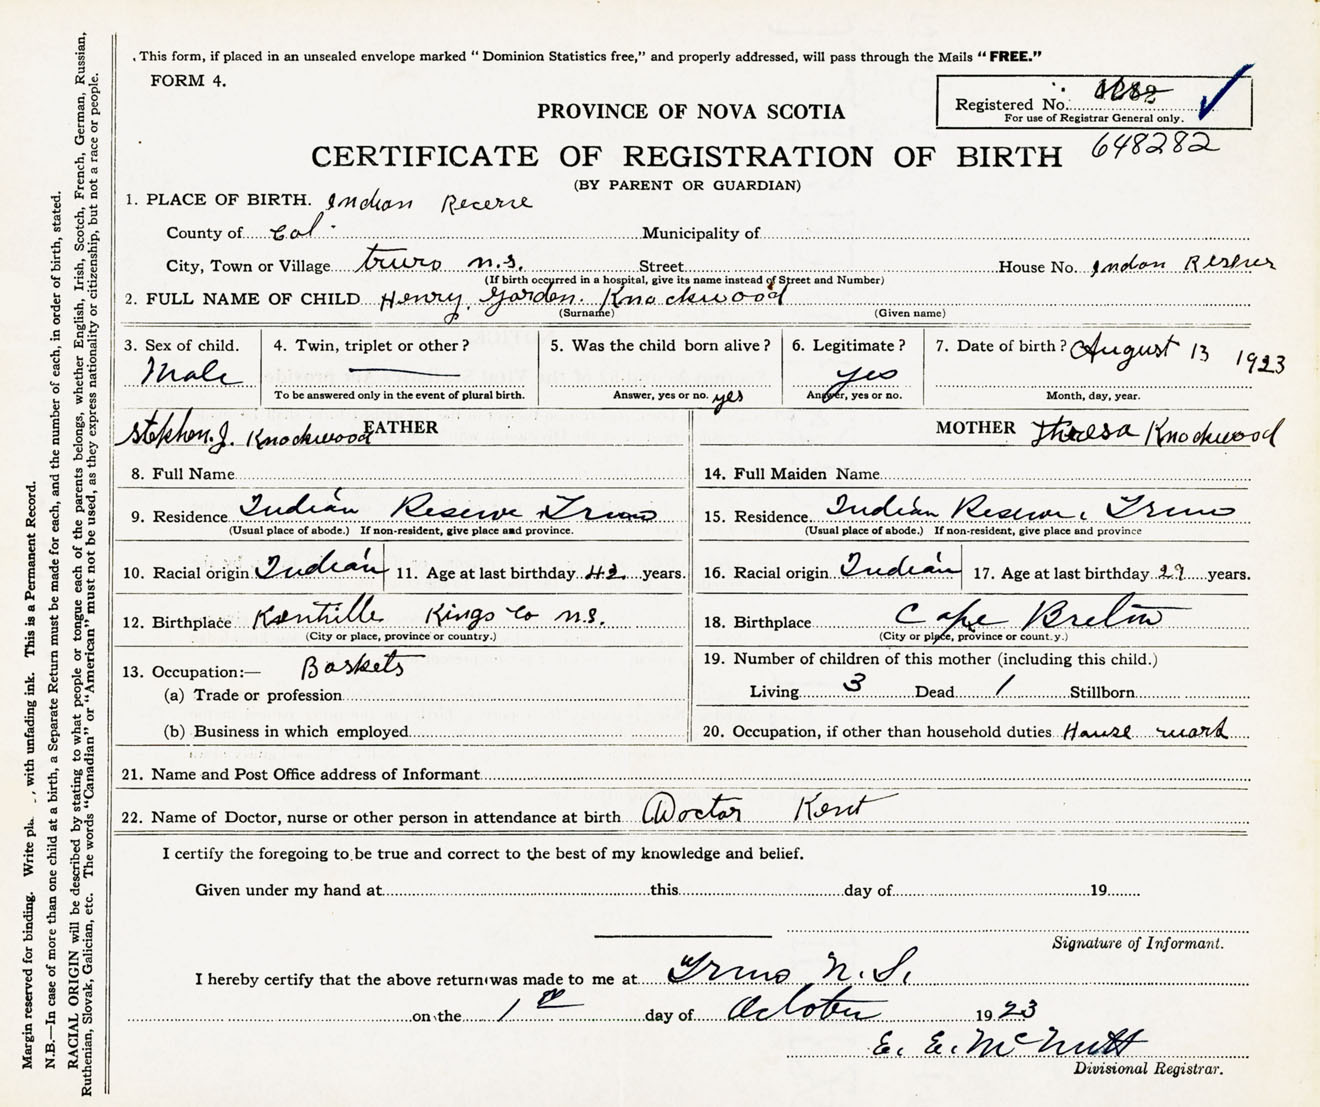 This form, if placed in an unsealed envelope marked "Dominion Statistics free," and properly addressed, will pass through the Mails "FREE."
FORM 4.
Registered No.
For use of Registrar General only.
648282
PROVINCE OF NOVA SCOTIA
CERTIFICATE OF REGISTRATION OF BIRTH
(BY PARENT OR GUARDIAN)
1. PLACE OF BIRTH. Indian Recerve
County of Col Municipality of
City, Town or Village truro n.s. Street House No. Indian
(If birth occurred in a hospital, give its name instead of Street and Number)
2. FULL NAME OF CHILD Henry Gorden. Knockwood
(Surname) (Given name)
3. Sex of child. 4. Twin, triplet or other? 5. Was the child born alive? 6. Legitimate? 7. Date of birth? August 13 1923
Male yes
To be answered only in the event of plural birth. Answer, yes or no. yes Answer, yes or no. Month, day, year.
Stephen. J. Knockwood FATHER MOTHER Theresa Knockwood
8. Full Name 14. Full Maiden Name
9. Residence Indian Reserve Truro 15. Residence Indian Reserve, Truro
(Usual place of abode.) If non-resident, give place and province. (Usual place of abode.) If non-resident, give place and province
10. Racial origin Indian 11. Age at last birthday 42 years. 16. Racial origin Indian 17. Age at last birthday 27 years.
12. Birthplace Kentville Kings Co n.s. 18. Birthplace Cape Breton
(City or place, province or country.) (City or place, province or count.y.)
13. Occupation:— Baskets 19. Number of children of this mother (including this child.)
(a) Trade or profession Living 3 Dead 1 Stillborn
(b) Business in which employed 20. Occupation, if other than household duties House work
21. Name and Post Office address of Informant
22. Name of Doctor, nurse or other person in attendance at birth Doctor Kent
I certify the foregoing to be true and correct to the best of my knowledge and belief.
Given under my hand at this day of 19
Signature of Informant.
I hereby certify that the above return was made to me at Truro N. S.
on the 1st day of October 1923
E. E. McNutt
Divisional Registrar.
Margin reserved for binding. Write pla , with unfading ink. This is a Permanent Record.
N.B.—In case of more than one child at a birth, a Separate Return must be made for each, and the number of each, in order of birth, stated.
RACIAL ORIGIN will be described by stating to what people or tongue each of the parents belongs, whether English, Irish, Scotch, French, German, Russian,
Ruthenian, Slovak, Galician, etc. The words "Canadian" or "American" must not be used, as they express nationality or citizenship, but not a race or people.